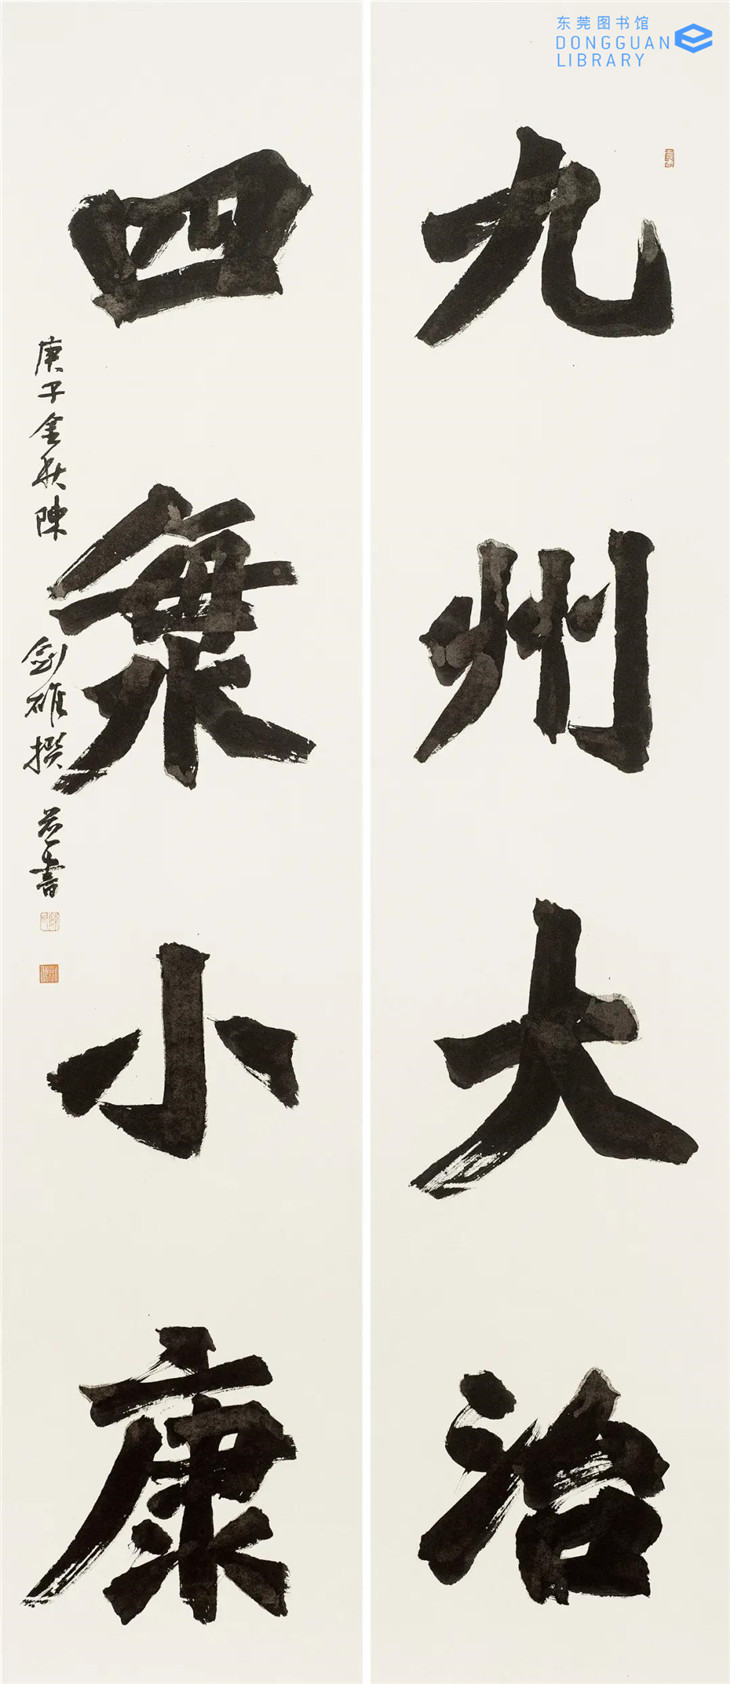 东莞图书馆
DONGGUAN
LIBRARY
九州大治
四海小康
庚子金秋陳劍雄撰并書